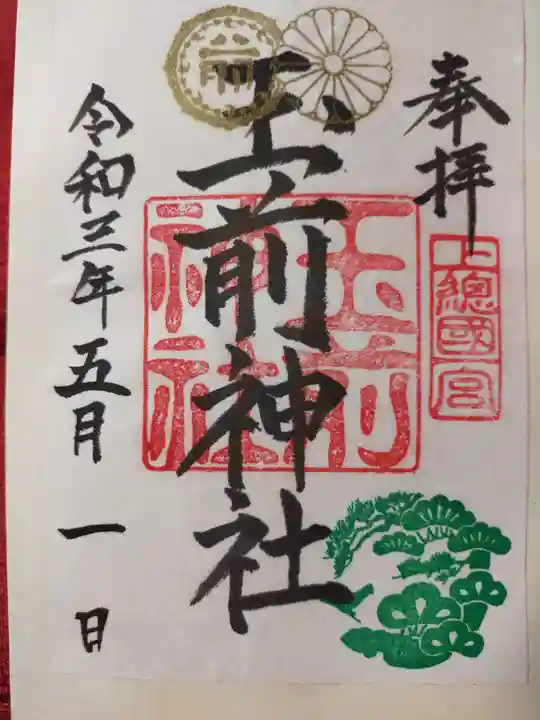 奉拝
上總國宮
玉前神社
玉前
神社
令和三年五月一日